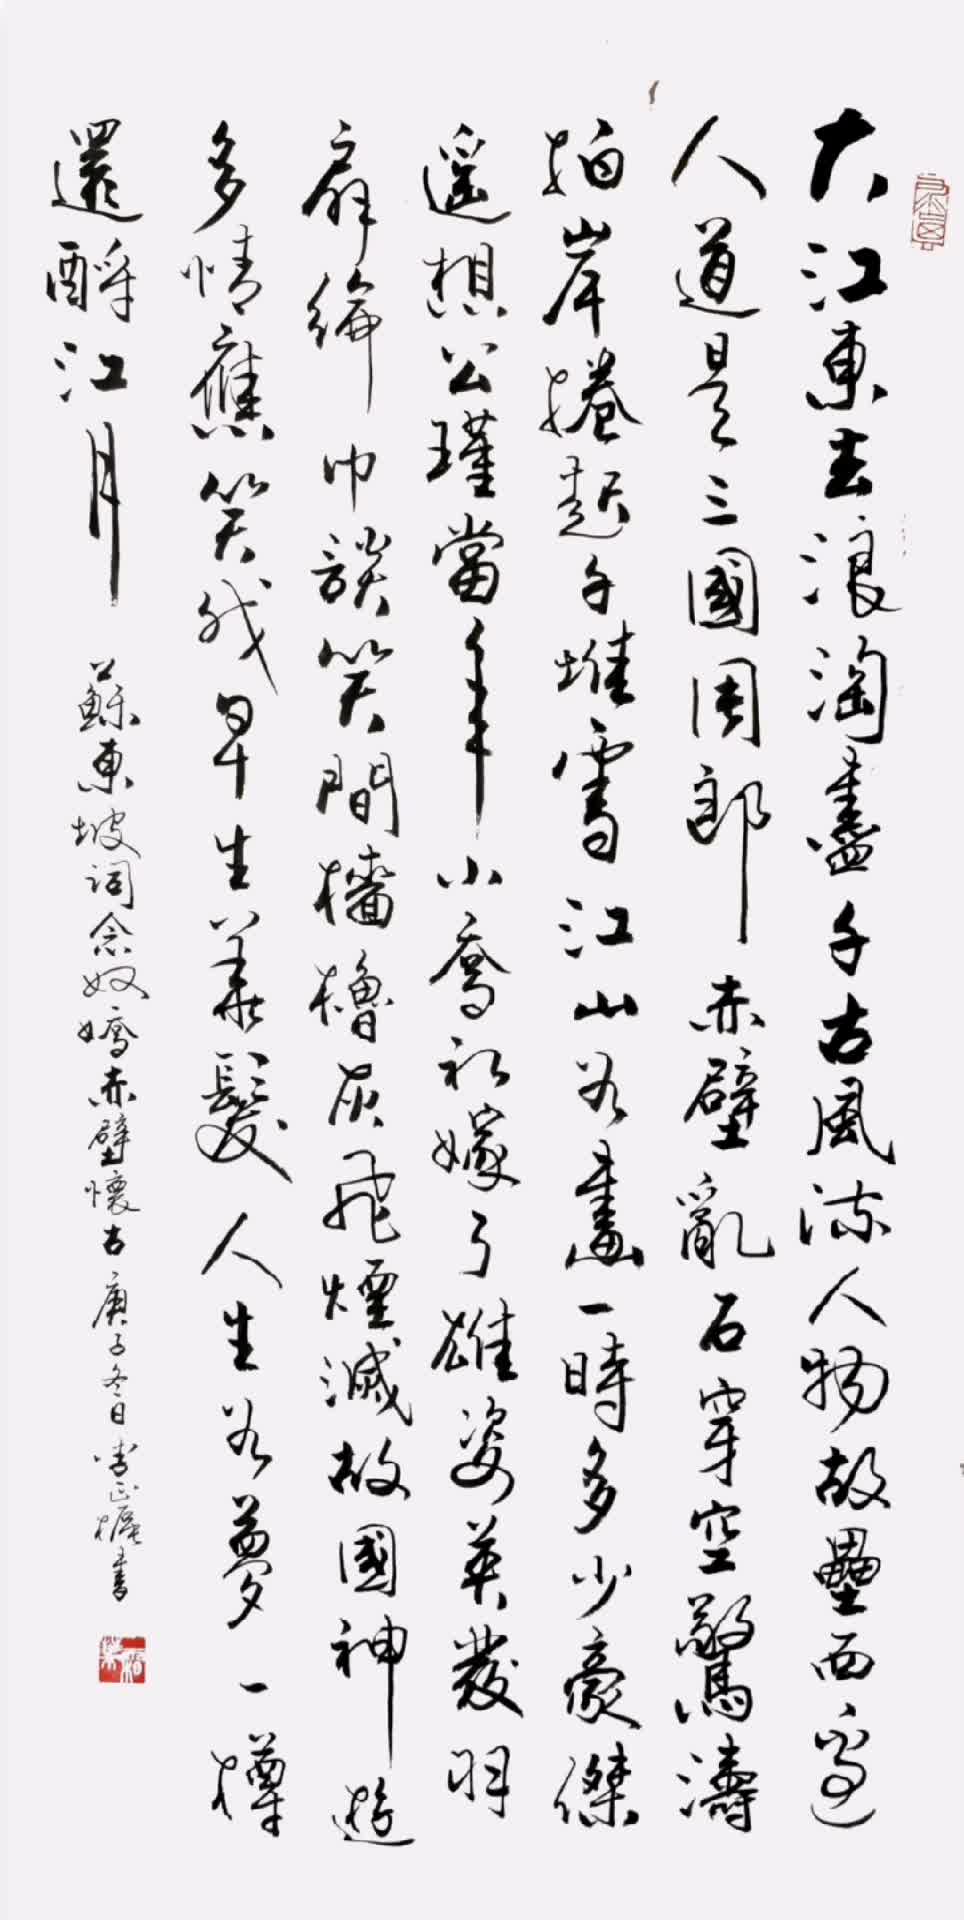 大江東去浪淘盡千古風流人物故壘西邊
人道是三國周郎赤壁亂石穿空驚濤
拍岸捲起千堆雪江山如畫一時多少豪傑
遙想公瑾當年小喬初嫁了雄姿英發羽
扇綸巾談笑間檣櫓灰飛煙滅故國神遊
多情應笑我早生華髮人生如夢一樽
還酹江月
蘇東坡詞念奴嬌赤壁懷古庚子冬日李正樨書